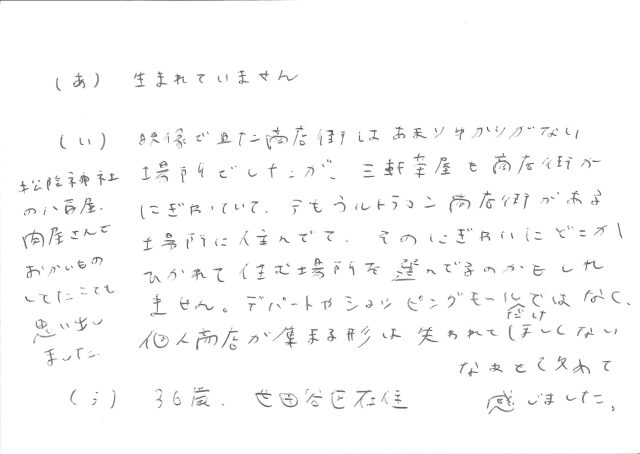 (あ) 生まれていません
(い) 映像で見た商店街はあまりゆかりがない
場所でしたが、三軒茶屋も商店街が
にぎわっていて、今もウルトラマン商店街がある
場所に住んでて、そのにぎわいにどこかし
ひかれて住む場所を選んでるのかもしれ
ません。デパートやショッピングモールだけではなく、
個人商店が集まる形は失われてほしくない
なぁと改めて
感じました。
松陰神社
の八百屋、
肉屋さんで
おかいもの
してたことも
思い出し
ました
(う) 36歳、世田谷区在住